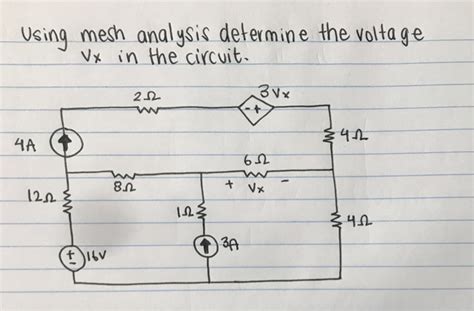 Using mesh analysis determine the voltage
Vx in the circuit.
2Ω
3Vx
- +
4A
4Ω
6Ω
8Ω
+ Vx -
12Ω
1Ω
4Ω
3A
+
-
16V